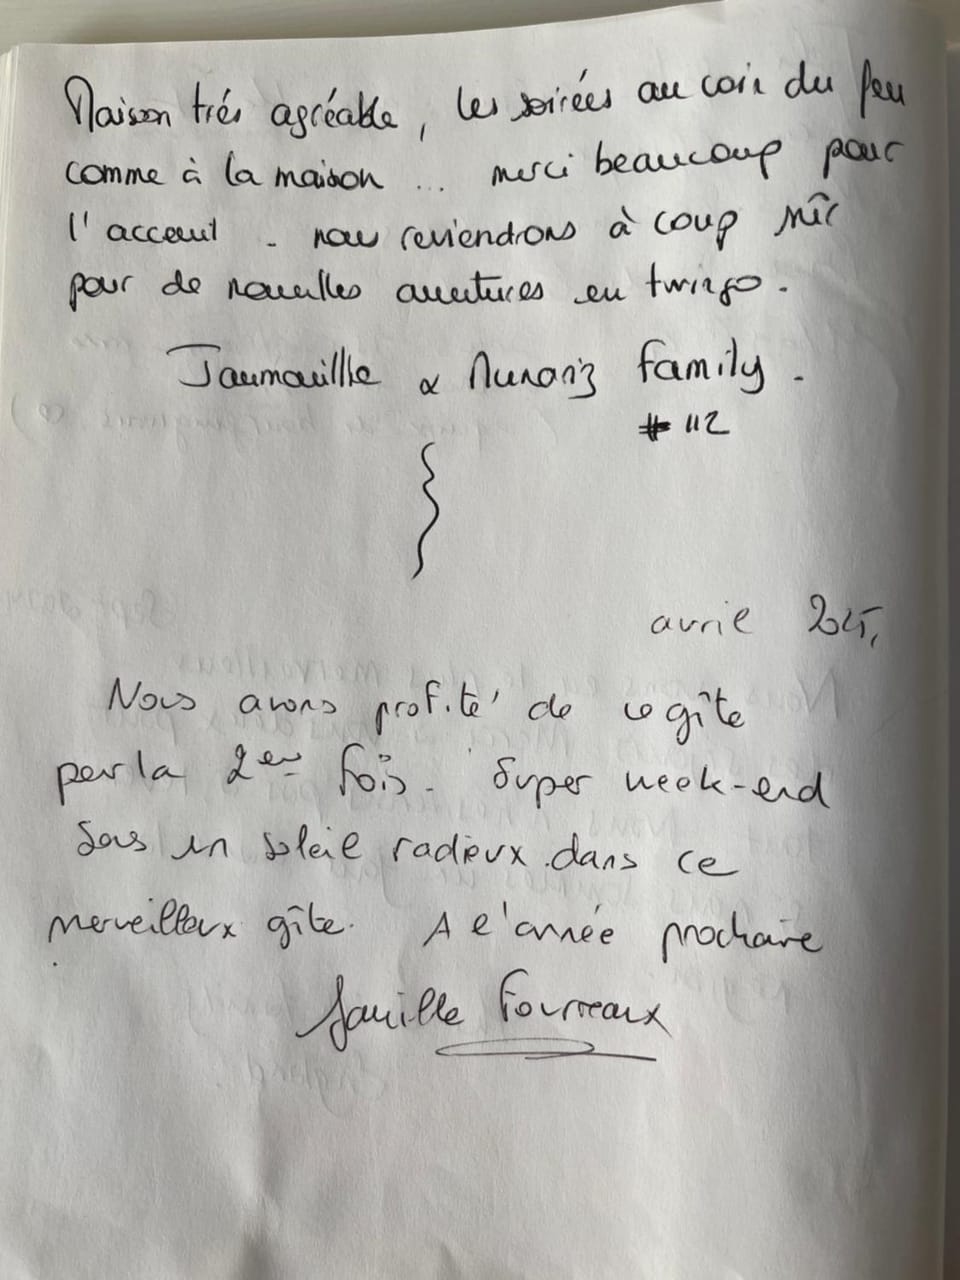 Maison très agréable, les soirées au coin du feu
comme à la maison ... merci beaucoup pour
l'acceuil - nous reviendrons à coup sûr
pour de nouvelles aventures en twingo.
& family.
# 112
avril 2025,
Nous avons profité de ce gîte
pour la 2em fois. Super week-end
sous un soleil radieux dans ce
merveilleux gîte. A l'année prochaine
famille Fourreaux